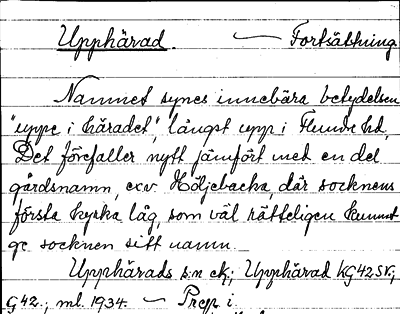 Upphärad. — Fortsättning
Namnet synes innebära betydelsen
"uppe i häradet", längst upp i Flundre hd.
Det förefaller nytt jämfört med en del
gårdsnamn, ex.v. Höljebacka, där socknens
första kyrka låg, som väl rätteligen kunnat
ge socknen sitt namn.
Upphärads sn ck; Upphärad KG42SV;
G42; ml. 1934. — Prep i